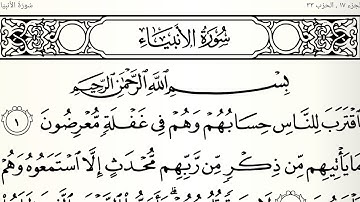 الجزء ١٧ , الحزب ٣٣
سورة الأنبياء
سُورَةُ الأَنبِيَاءِ
بِسْمِ اللَّهِ الرَّحْمَٰنِ الرَّحِيمِ
ٱقْتَرَبَ لِلنَّاسِ حِسَابُهُمْ وَهُمْ فِى غَفْلَةٍ مُّعْرِضُونَ ١
مَا يَأْتِيهِم مِّن ذِكْرٍ مِّن رَّبِّهِم مُّحْدَثٍ إِلَّا ٱسْتَمَعُوهُ وَهُمْ